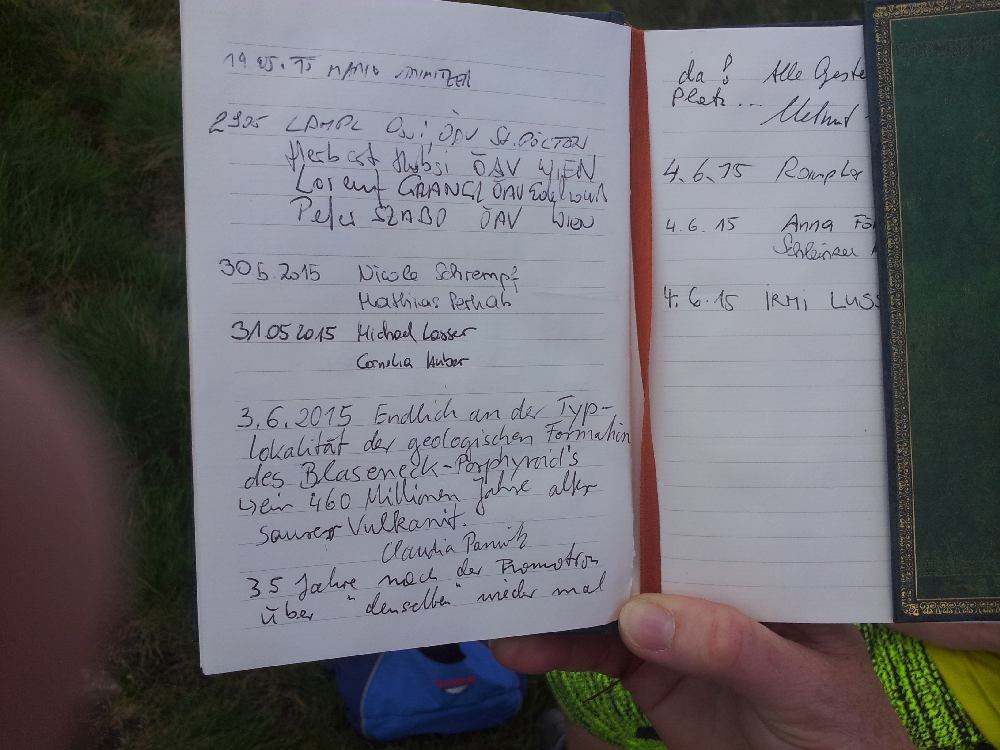 19.05.15 MARIO
2905 LAMPL Ossi, ÖAV St. PÖLTEN
Herbert Hubsi ÖAV WIEN
Lorenz GRANGL ÖAV Edelweiß
Peter SZABO ÖAV WIEN
30 5. 2015 Nicole Schrempf
Mathias Perhab
31.05 2015 Michael Lasser
Cornelia Huber
3.6.2015 Endlich an der Typ-
lokalität der geologischen Formation
des Blaseneck-Porphyroid's
↳ ein 460 Millionen Jahre alter
saurer Vulkanit.
Claudia Panwitz
35 Jahre nach der Promotion
über "denselben" wieder mal
da! Alle Geste
Platz ... Helmut
4.6.15
4.6.15 Anna
4.6.15 IRMI LUSS